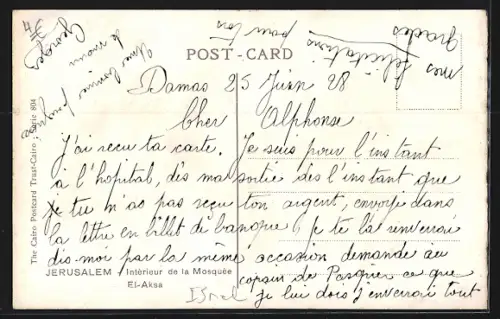 POST-CARD
Damas 25 Juin 28
Cher Alphonse
J'ai reçu ta carte. Je suis pour l'instant
à l'hopital, dès ma sortie dès l'instant que
je tu m'as pas reçu ton argent, envoyé dans
la lettre en billet de banque, je te la renverrai
dis-moi par la même occasion demande au
copain de Pasquier ce que
je lui dois j'enverrai tout
mes félicitations pour tes
grades
Une bonne poignée
de main
Georges
The Cairo Postcard Trust-Cairo Serie 804
JERUSALEM Intérieur de la Mosquée
El-Aksa
Isrel